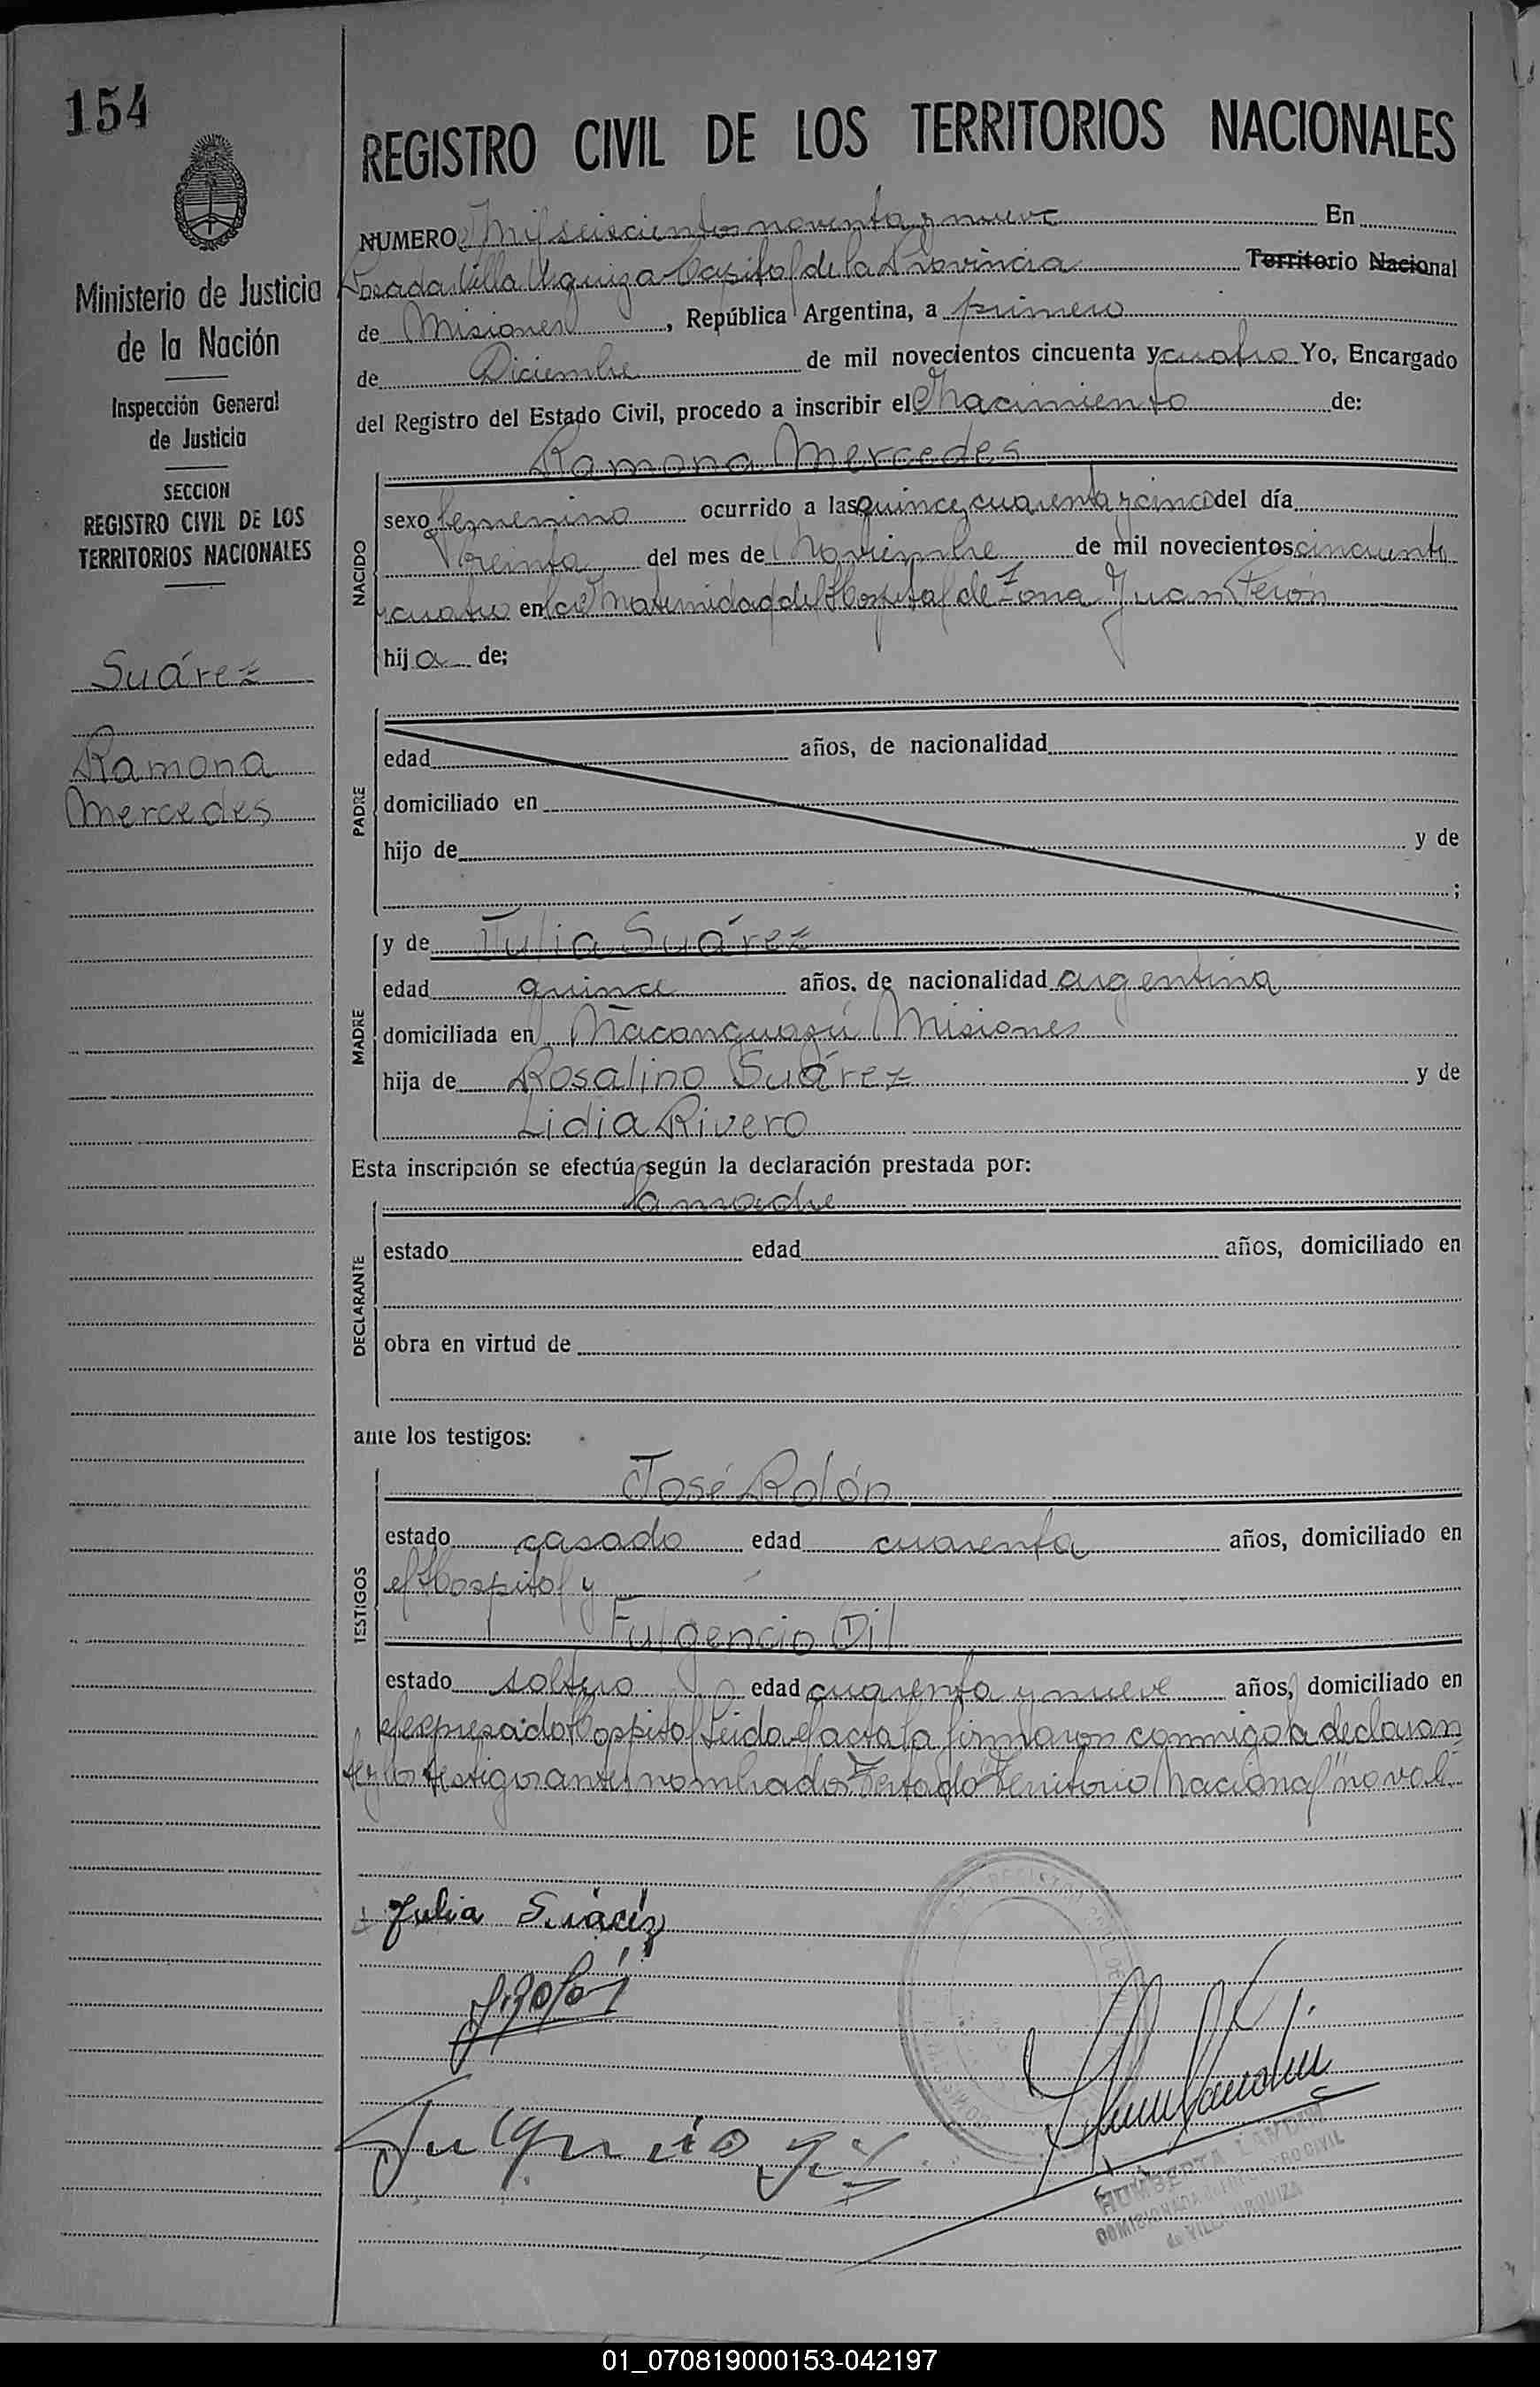 154
Ministerio de Justicia
de la Nación
Inspección General
de Justicia
SECCION
REGISTRO CIVIL DE LOS
TERRITORIOS NACIONALES
Suárez
Ramona
Mercedes
REGISTRO CIVIL DE LOS TERRITORIOS NACIONALES
NUMERO Mil seiscientos noventa y nueve En
Posadas Villa Urquiza Capital de la Provincia Territorio Nacional
de Misiones, República Argentina, a primero
de Diciembre de mil novecientos cincuenta y cuatro Yo, Encargado
del Registro del Estado Civil, procedo a inscribir el Nacimiento de:
Ramona Mercedes
NACIDO
sexo femenino ocurrido a las quince, cuarenta y cinco del día
treinta del mes de Noviembre de mil novecientos cincuenta
y cuatro en la Maternidad del Hospital de Zona Juan Perón
hija de;
PADRE
edad años, de nacionalidad
domiciliado en
hijo de y de
;
MADRE
y de Julia Suárez
edad quince años, de nacionalidad argentina
domiciliada en Ñacanguazú Misiones
hija de Rosalino Suárez y de
Lidia Rivero
Esta inscripción se efectúa según la declaración prestada por:
la madre
DECLARANTE
estado edad años, domiciliado en
obra en virtud de
ante los testigos:
José Rolón
TESTIGOS
estado casado edad cuarenta años, domiciliado en
el Hospital y
Fulgencio Gil
estado soltero edad cuarenta y nueve años, domiciliado en
el expresado Hospital Leída el acta la firmaron conmigo la declaran
te y los testigos antes nombrados Testado "Territorio Nacional" no vale
Julia Suárez
J. Rolón
Fulgencio Gil
HUMBERTA LANDINI
COMISIONADA del REGISTRO CIVIL
de VILLA URQUIZA
01_070819000153-042197